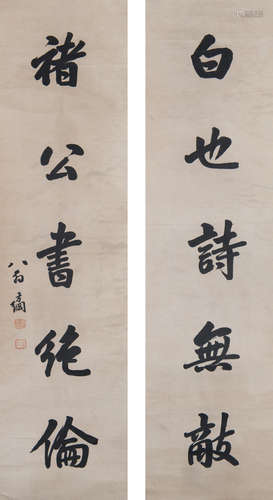 白也詩無敵
褚公書絶倫